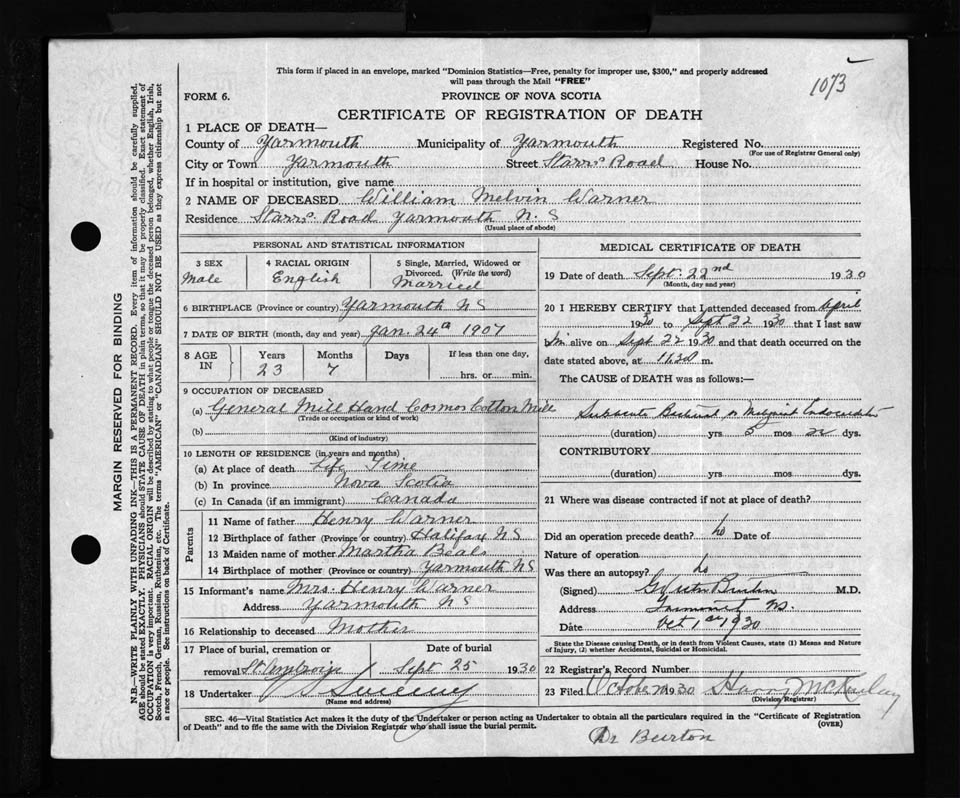 1073
This form if placed in an envelope, marked "Dominion Statistics—Free, penalty for improper use, $300," and properly addressed
will pass through the Mail "FREE"
FORM 6. PROVINCE OF NOVA SCOTIA
CERTIFICATE OF REGISTRATION OF DEATH
1 PLACE OF DEATH—
County of Yarmouth Municipality of Yarmouth Registered No.
(For use of Registrar General only)
City or Town Yarmouth Street Starrs Road House No.
If in hospital or institution, give name
2 NAME OF DECEASED William Melvin Warner
Residence Starrs Road Yarmouth N.S
(Usual place of abode)
PERSONAL AND STATISTICAL INFORMATION
3 SEX 4 RACIAL ORIGIN 5 Single, Married, Widowed or
Divorced. (Write the word)
Male English Married
6 BIRTHPLACE (Province or country) Yarmouth NS
7 DATE OF BIRTH (month, day and year) Jan 24th 1907
8 AGE IN Years Months Days If less than one day,
23 7 hrs. or min.
9 OCCUPATION OF DECEASED
(a) General Mill Hand Cosmos Cotton Mill
(Trade or occupation or kind of work)
(b)
(Kind of industry)
10 LENGTH OF RESIDENCE (in years and months)
(a) At place of death Life Time
(b) In province Nova Scotia
(c) In Canada (if an immigrant) Canada
Parents
11 Name of father Henry Warner
12 Birthplace of father (Province or country) Halifax NS
13 Maiden name of mother Martha Beals
14 Birthplace of mother (Province or country) Yarmouth NS
15 Informant's name Mrs. Henry Warner
Address Yarmouth NS
16 Relationship to deceased Mother
17 Place of burial, cremation or Date of burial
removal Sept 25 1930
18 Undertaker Sweeney
(Name and address)
MEDICAL CERTIFICATE OF DEATH
19 Date of death Sept. 22nd 1930
(Month, day and year)
20 I HEREBY CERTIFY that I attended deceased from April
1930 to Sept 22 1930 that I last saw
him alive on Sept 22 1930 and that death occurred on the
date stated above, at 11.30 m.
The CAUSE of DEATH was as follows:—
Subacute Bacterial or Malignant Endocarditis
(duration) yrs 5 mos 22 dys.
CONTRIBUTORY
(duration) yrs mos dys.
21 Where was disease contracted if not at place of death?
Did an operation precede death? No Date of
Nature of operation
Was there an autopsy? No
(Signed) Burton M.D.
Address Yarmouth NS.
Date Oct 1st 1930
State the Disease causing Death, or in death from Violent Causes, state (1) Means and Nature
of Injury, (2) whether Accidental, Suicidal or Homicidal.
22 Registrar's Record Number
23 Filed October 1930 Harry McKinlay
(Division Registrar)
SEC. 46—Vital Statistics Act makes it the duty of the Undertaker or person acting as Undertaker to obtain all the particulars required in the "Certificate of Registration
of Death" and to file the same with the Division Registrar who shall issue the burial permit. (OVER)
Dr Burton
MARGIN RESERVED FOR BINDING
N.B.—WRITE PLAINLY WITH UNFADING INK—THIS IS A PERMANENT RECORD. Every item of information should be carefully supplied.
AGE should be stated EXACTLY. PHYSICIANS should STATE CAUSE OF DEATH in plain terms, so that it may be properly classified. Exact statement of
OCCUPATION is very important. RACIAL ORIGIN will be described by stating to what people or tongue the deceased person belonged, whether English, Irish,
Scotch, French, German, Russian, Ruthenian, etc. The terms "AMERICAN" or "CANADIAN" SHOULD NOT BE USED as they express citizenship but not
a race or people. See instructions on back of Certificate.